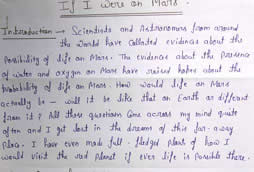 If I were on Mars.
Introduction - Scientists and Astronomers from around
the world have collected evidence about the
possibility of life on Mars. The evidence about the presence
of water and oxygen on Mars have raised hopes about the
probability of life on Mars. How would life on Mars
actually be - will it be like that on Earth or different
from it? All those questions come across my mind quite
often and I get lost in the dreams of this far-away
place. I have even made full-fledged plans of how I
would visit the red planet if ever life is possible there.